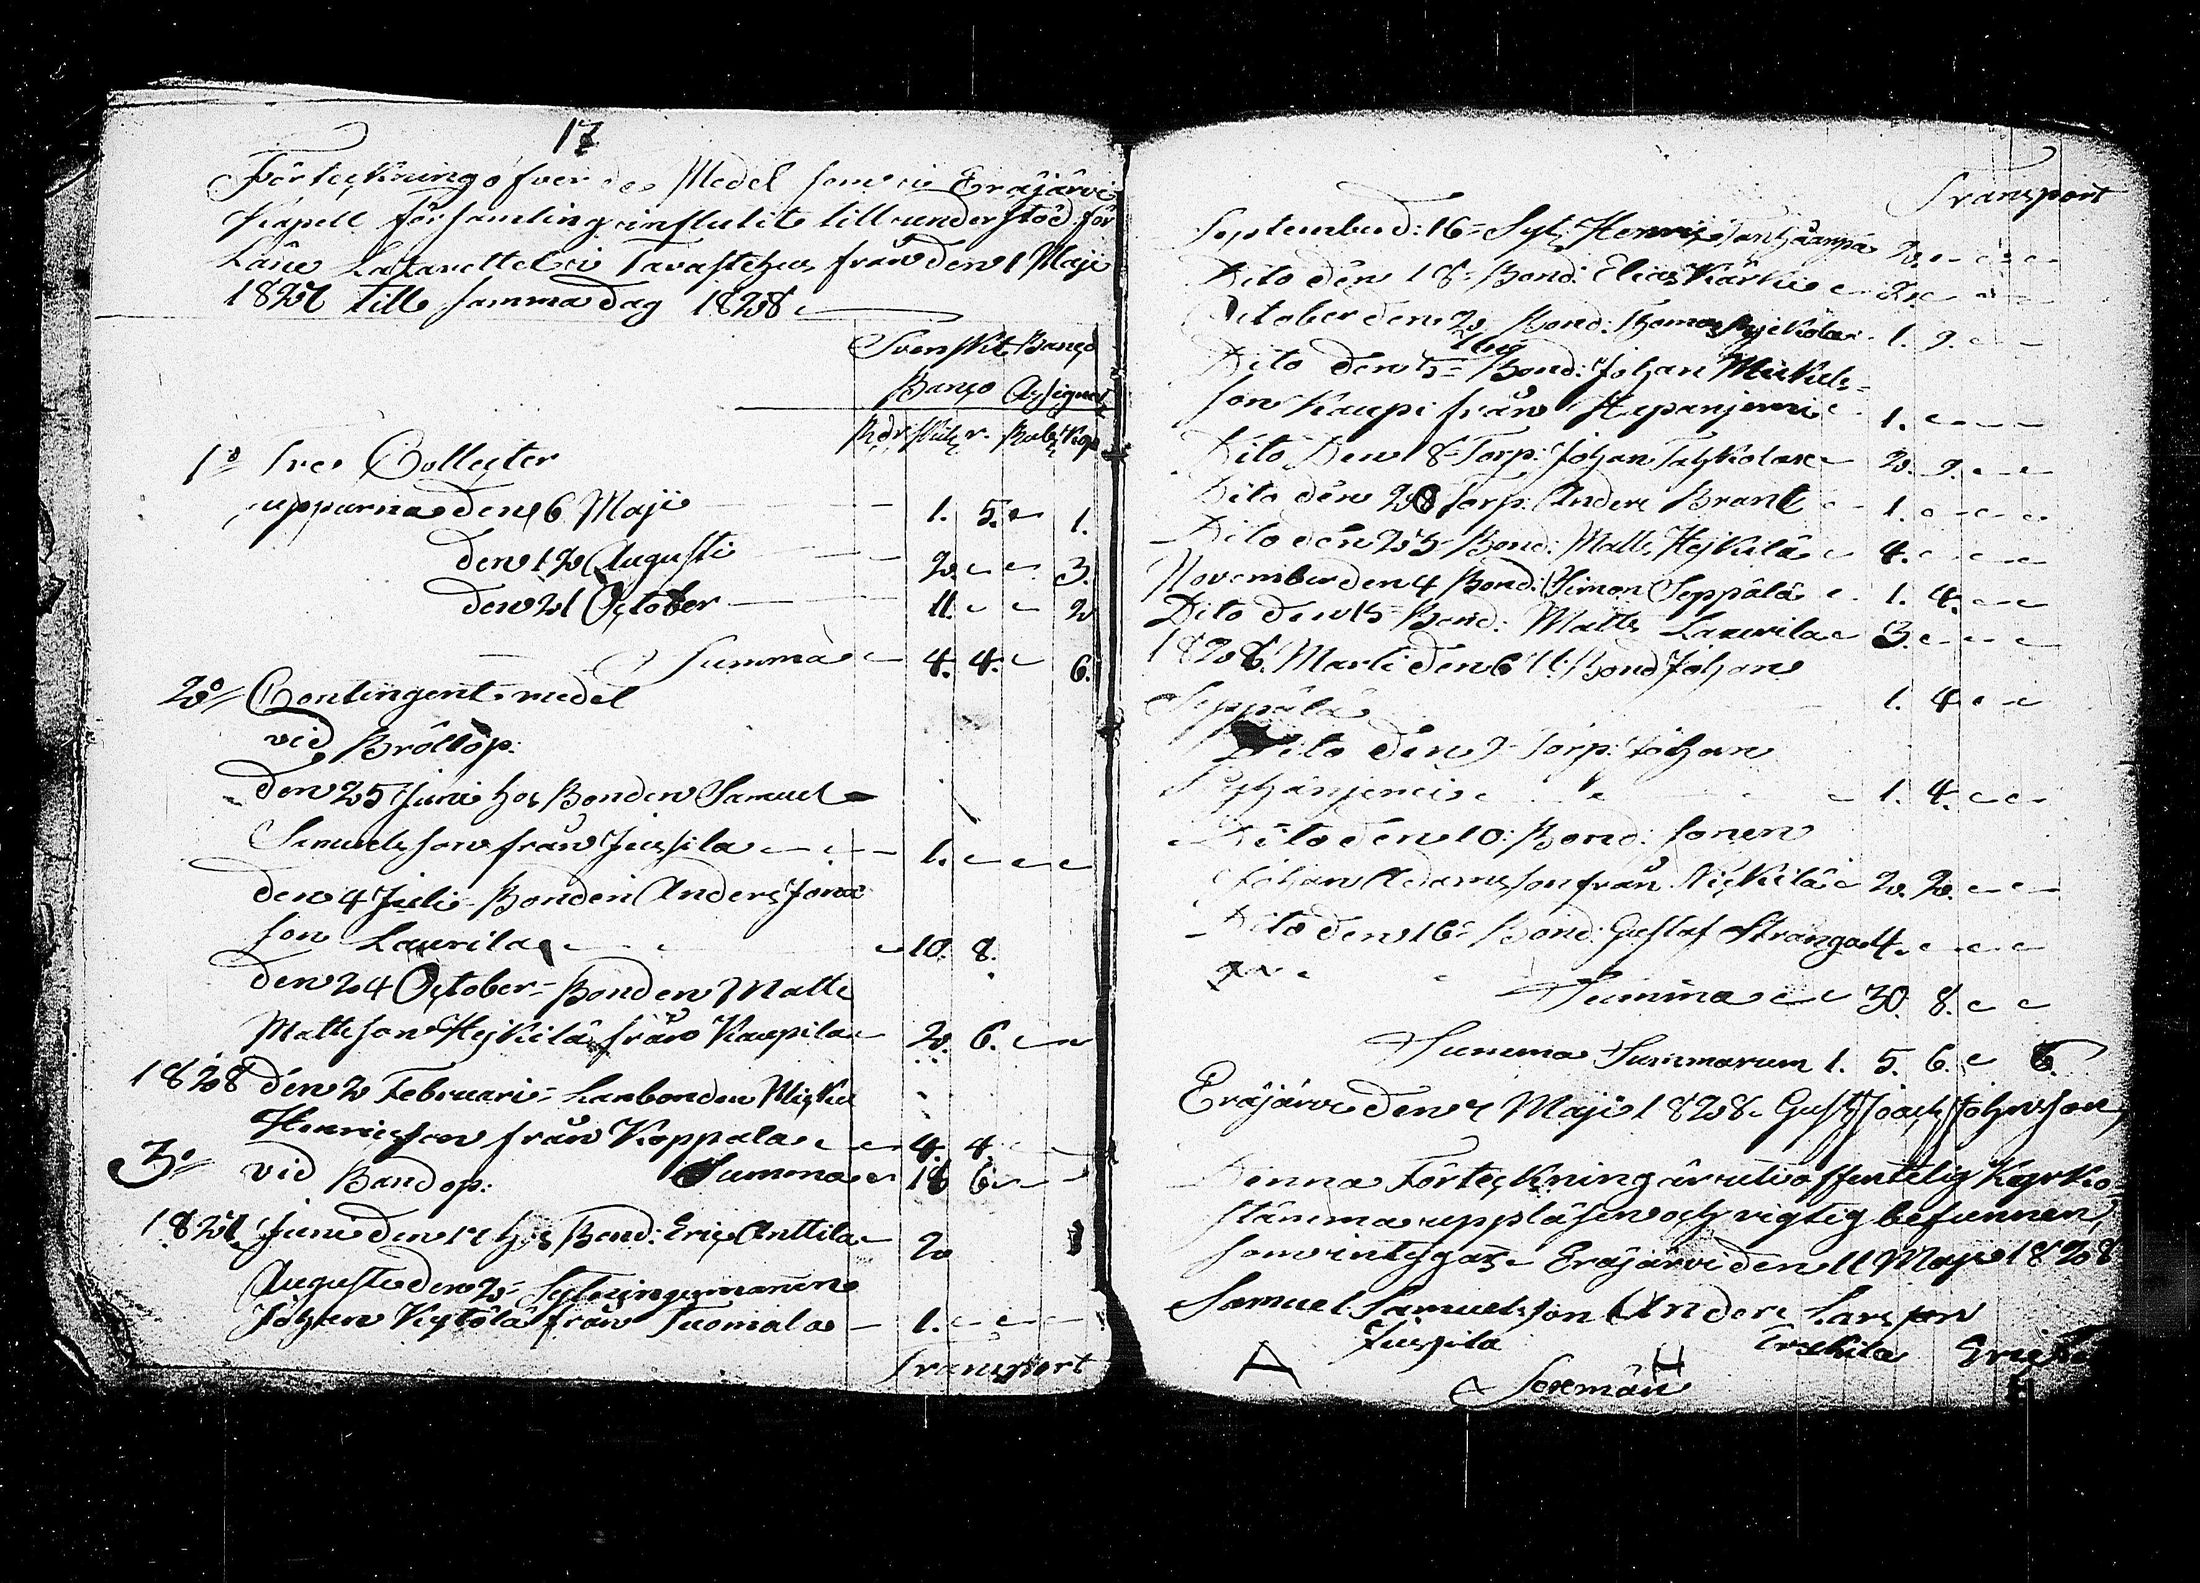 17
Förteckning öfver de Medel som i Eräjärvi
Kapell församling influtit till understöd för
Läns Lazarettet i Tavastehus från den 1 Maji
1827 till samma dag 1828
Svenskt Banco
Banco Assignat
Rdr. skill. r. Rub. Kop.
1o Tree Collecter
uppurna den 6 Maji 1. 5. 1.
den 12 Augusti 2. 3.
den 21 October 11. 2
Summa 4. 4. 6.
2o Contingent medel
vid Bröllop:
den 25 Juni hos Bonden Samuel
Samuelsson från Jussila 1.
den 4 Juli Bonden Anders Jona
son Laurila 10. 8.
den 24 October Bonden Matts
Mattsson Hejkilä från Kaupila 2. 6.
1828 den 2 Februari Lanbonden Mickel
Henricsson från Koppala 4. 4.
3o vid Bandop: Summa 18 6
1827 Juni den 17 hos Bond: Eric Anttila 2
Augusti den 2 Sytningsmannen
Johan Kytölä från Tuomala 1.
Transport
Transport
September d: 16 Syt: Henric 2.
Dito den 18 Bond: Elias Kärki 2.
October den 2 Bond: Thomas 1. 9.
Dito den 5 Bond: Johan Mickels-
son Kaupi från Hepanjemi 1.
Dito Den 8 Torp: Johan 2. 9.
Dito den 20 Torp: Anders Brant 1.
Dito den 25 Bond: Matts Hejkilä 4.
November den 4 Bond: Simon Seppälä 1. 4.
Dito den 15 Bond: Matts Laurila 3.
1828. Marti den 6 Bond Johan
Seppälä 1. 4.
Dito den 9 Torp: Johan
1. 4.
Dito den 10: Bond: sonen
Johan Adamsson från Nickilä 2. 2.
Dito den 16 Bond: Gustaf Stranga 4.
Summa 30. 8.
Summa Summarum 1. 5. 6. 6.
Eräjärvi den 7 Maji 1828. Gust: Joach: Johnsson
Denna Förteckning är uti offentelig Kyrko
stämma uppläsen och rigtig befunnen,
som intygas Eräjärvi den 11 Maji 1828
Samuel Samuelsson Anders Larsson
Jussila Erckila
A H
Sexmän